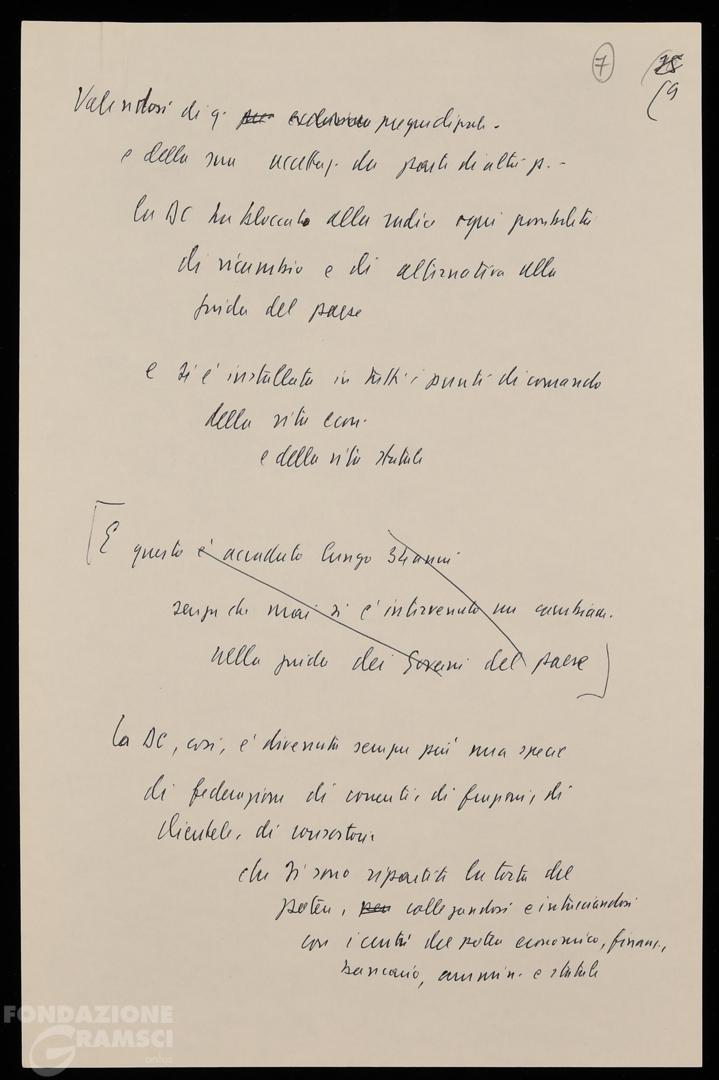 7
Valendosi di q. pregiudiziale.
e della sua accettaz. da parte di altri p. -
la DC ha bloccato alla radice ogni possibilità
di ricambio e di alternativa alla
guida del paese
e si è installata in tutti i punti di comando
della vita econ.
e della vita statale
[E questo è accaduto lungo 34 anni
senza che mai si è intervenuto un cambiam.
nella guida dei Governi del paese]
La DC, così, è divenuta sempre più una specie
di federazione di correnti, di frazioni, di
clientele, di consorterie
che si sono ripartite la torta del
potere, collegandosi e intrecciandosi
con i centri del potere economico, finanz.,
bancario, ammin. e statale
FONDAZIONE
GRAMSCI
onlus